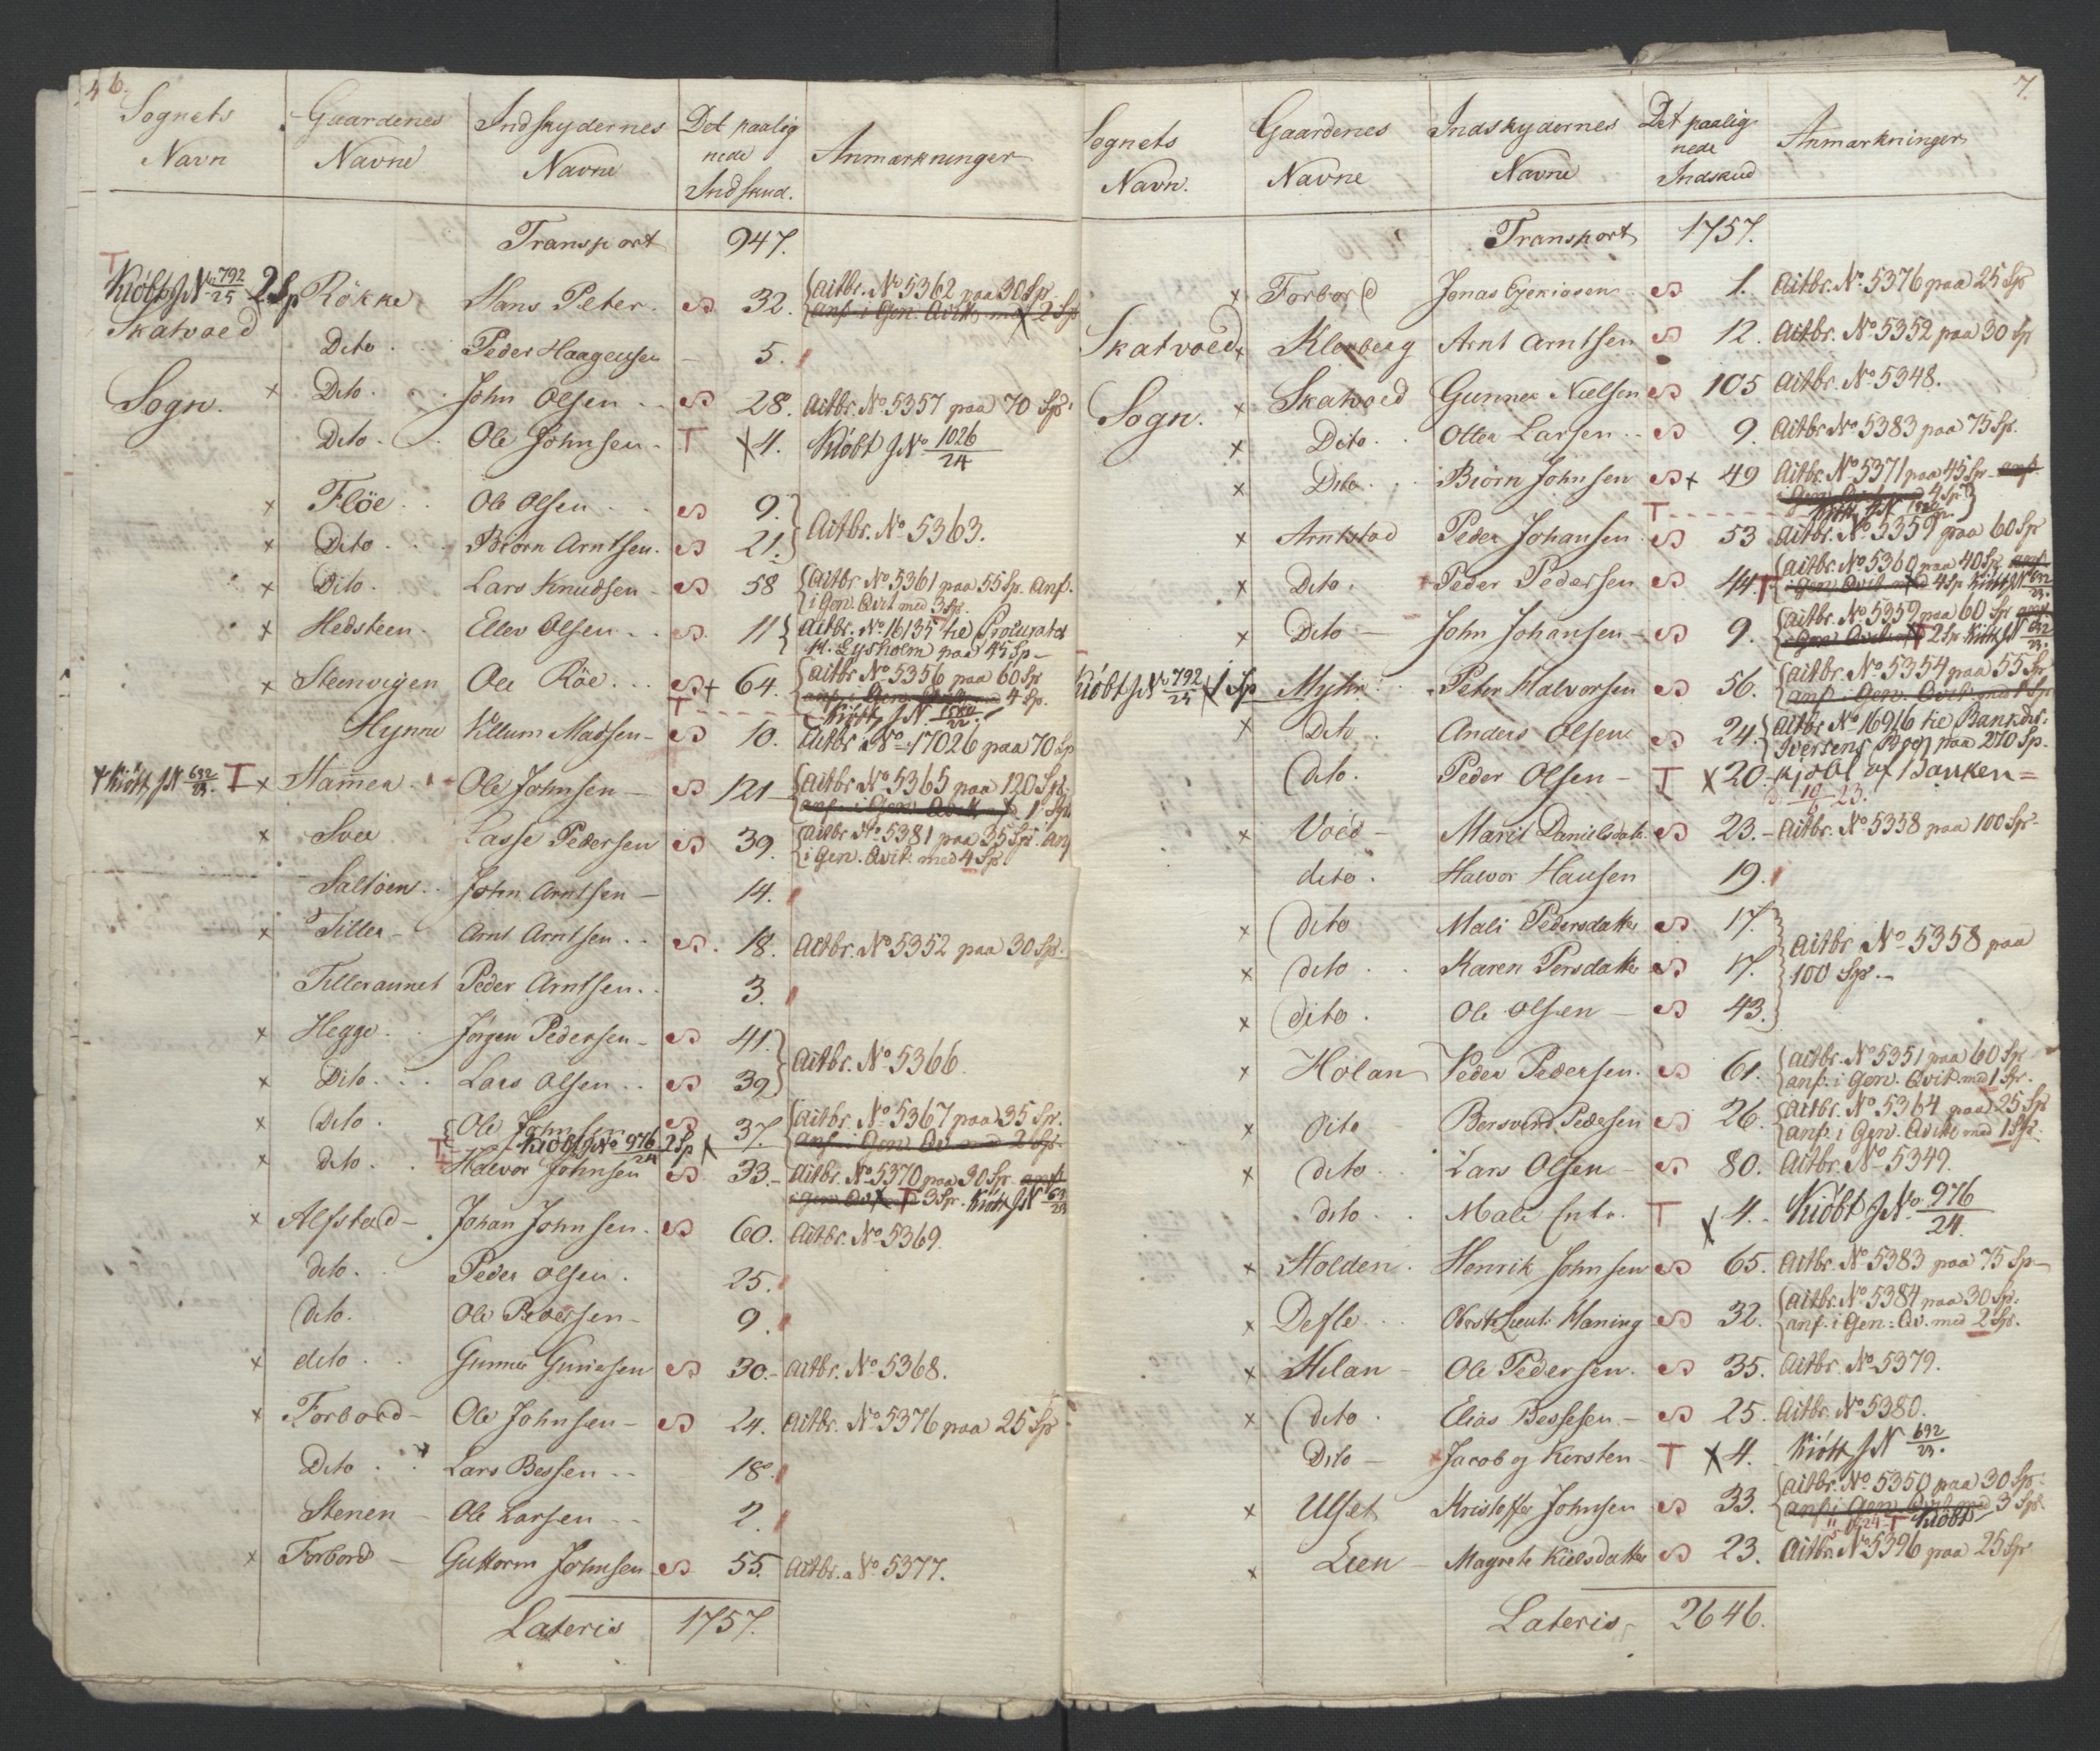 46.
Sognets Navn | Gaardenes Navne | Indskydernes Navne | Det paalignede Indskud. | Anmærkninger
Transport 947.
T Kiöbt J N 792/25 2 Sp Rökke Hans Peter. S 32. Aitbr. No 5362 paa 30 Sp. anf. i Gen. Qvit. med 2 Sp
Skatvoed
Dito Peder Haagensen 5.
Sogn. x Dito. John Olsen S 28. Aitbr. No 5357 paa 70 Sp.
Dito. Ole Johnsen T x 4. Kiöbt J No 1026/24
x Flöe Ole Olsen S 9.
x Dito Biörn Arntsen. S 21. Aitbr. No 5363.
x Dito. Lars Knudsen S 58 Aitbr. No 5361 paa 55 Sp. anf. i Gen. Qvit med 3 Sp.
x Hedsteen. Ellev Olsen S 11 Aitbr. No 16135 til Procurator M. Lysholm paa 45 Sp
x Steenvigen Ole Röe S + 64. Aitbr. No 5356 paa 60 Sp
anf. i Gen. Qvit. med 4 Sp.
T Kiöbt J N
Hynne Villum Madsen S 10. Aitbr. No 17026 paa 70 Sp
+ Kiöbt J N 632/23. T x Hammer Ole Johnsen S 121 Aitbr. No 5365 paa 120 Sp. anf. i Gen. Qvit 1 Sp.
x Svee Lasse Pedersen S 39. Aitbr. No 5381 paa 35 Sp. anf i Gen. Qvit. med 4 Sp.
Saltöen John Arntsen 14.
x Tiller Arnt Arntsen S 18. Aitbr. No 5352 paa 30 Sp.
Tilleraunet Peder Arntsen 3.
x Hegge Jörgen Pedersen S 41.
x Dito Lars Olsen S 39 Aitbr. No 5366.
x Dito. Ole Johnsen S 37. Aitbr. No 5367 paa 35 Sp. anf. i Gen. Qv. med 2 Sp.
T Kiöbt J No 976/24 2 Sp x
x dito Halvor Johnsen S 33. Aitbr. No 5370 paa 30 Sp. anf. i Gen. Qv T 3 Sp. Kiöbt J N
x Alfstad Johan Johnsen. S 60. Aitbr. No 5369.
dito. Peder Olsen. 25.
dito. Ole Pedersen 9.
x dito Gunner S 30. Aitbr. No 5368.
x Forbord Ole Johnsen S 24. Aitbr. No 5376 paa 25 Sp
Dito Lars Bessen 18.
Stenen Ole Larsen 2.
x Forbord Guttorm Johnsen S 55. Aitbr. No 5377.
Lateris 1757.
7.
Sognets Navn. | Gaardenes Navne | Indskydernes Navne | Det paalignede Indskud | Anmærkninger
Transport 1757.
x Forbord Jonas S 1. Aitbr. No 5376 paa 25 Sp
Skatvoed x Klefberg Arnt Arntsen S 12. Aitbr. No 5352 paa 30 Sp
Sogn. x Skatvoed Gunner Nielsen S 105 Aitbr. No 5348.
x Dito Otter Larsen S 9. Aitbr. No 5383 paa 75 Sp.
x Dito Biörn Johnsen S + 49 Aitbr. No 5371 paa 45 Sp. anf. i Gen. Qvit. med 4 Sp.
T Kiöbt J N
x Arntstad Peder Johansen S 53 Aitbr. No 5359 paa 60 Sp
x Dito. Peder Pedersen S 44. T Aitbr. No 5360 paa 40 Sp. anf. i Gen. Qvit. med 4 Sp Kiöbt J N 632/23.
x Dito John Johansen S 9. Aitbr. No 5359 paa 60 Sp anf. i Gen. Qvit. T 2 Sp. Kiöbt J N 632/23.
Kiöbt J N 792/25 x 1 Sp Myhr Peter Halvorsen S 56. Aitbr. No 5354 paa 55 Sp anf. i Gen. Qvit. med 1 Sp
x Dito Anders Olsen S 24. Aitbr. No 16916 til Bankdir. Iversens Boe paa 270 Sp.
Dito. Peder Olsen T x 20 kjöbt af Banken
d. 10/5 23.
x Voed Marit Danielsdatr. S 23. Aitbr. No 5358 paa 100 Sp.
dito. Halvor Hansen 19.
x dito Mali Pedersdatter S 17.
x dito Karen Persdatter S 17. Aitbr No 5358 paa 100 Sp.
x dito. Ole Olsen S 43.
x Holan Peder Pedersen. S 61. Aitbr. No 5351 paa 60 Sp anf. i Gen. Qvit. med 1 Sp.
x dito Bersvend Pedersen S 26. Aitbr. No 5364 paa 25 Sp anf. i Gen. Qvitt. med 1 Sp.
x dito Lars Olsen S 80. Aitbr. No 5349.
dito Mali Enke. T x 4. Kiöbt J No 976/24.
x Holden. Henrik Johnsen S 65. Aitbr. No 5383 paa 75 Sp
x Defle Obrist Lieut. Haning S 32. Aitbr. No 5384 paa 30 Sp. anf. i Gen. Qv. med 2 Sp.
x Helan Ole Pedersen. S 35. Aitbr. No 5379.
x dito Elias Bessesen. S 25. Aitbr. No 5380.
Dito Jacob og Kirsten T x 4. Kiöbt J N 632/23.
x Ulset Kristoffer Johnsen S 33. Aitbr. No 5350 paa 30 Sp. anf. i Gen. Qvit med 3 Sp.
T Kiöbt
x Lien Magrete Kielsdatter S 23. Aitbr. No 5396 paa 25 Sp
Lateris 2646.